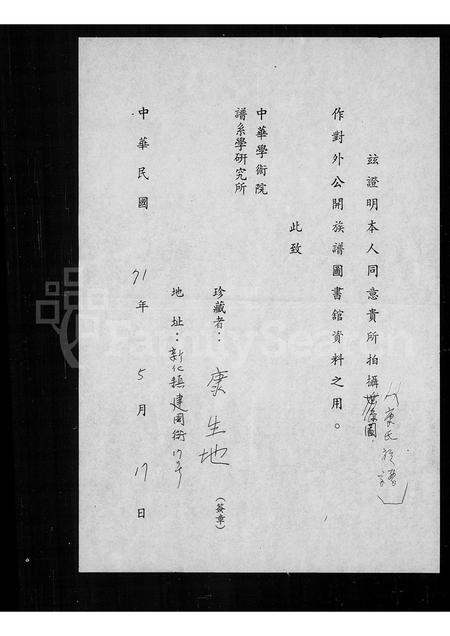 (康氏族譜)
茲證明本人同意貴所拍攝世系圖
作對外公開族譜圖書館資料之用。
此致
中華學術院
譜系學研究所
珍藏者：康生地（簽章）
地址：新化鎮建國街17号
中華民國71年5月17日
FamilySearch